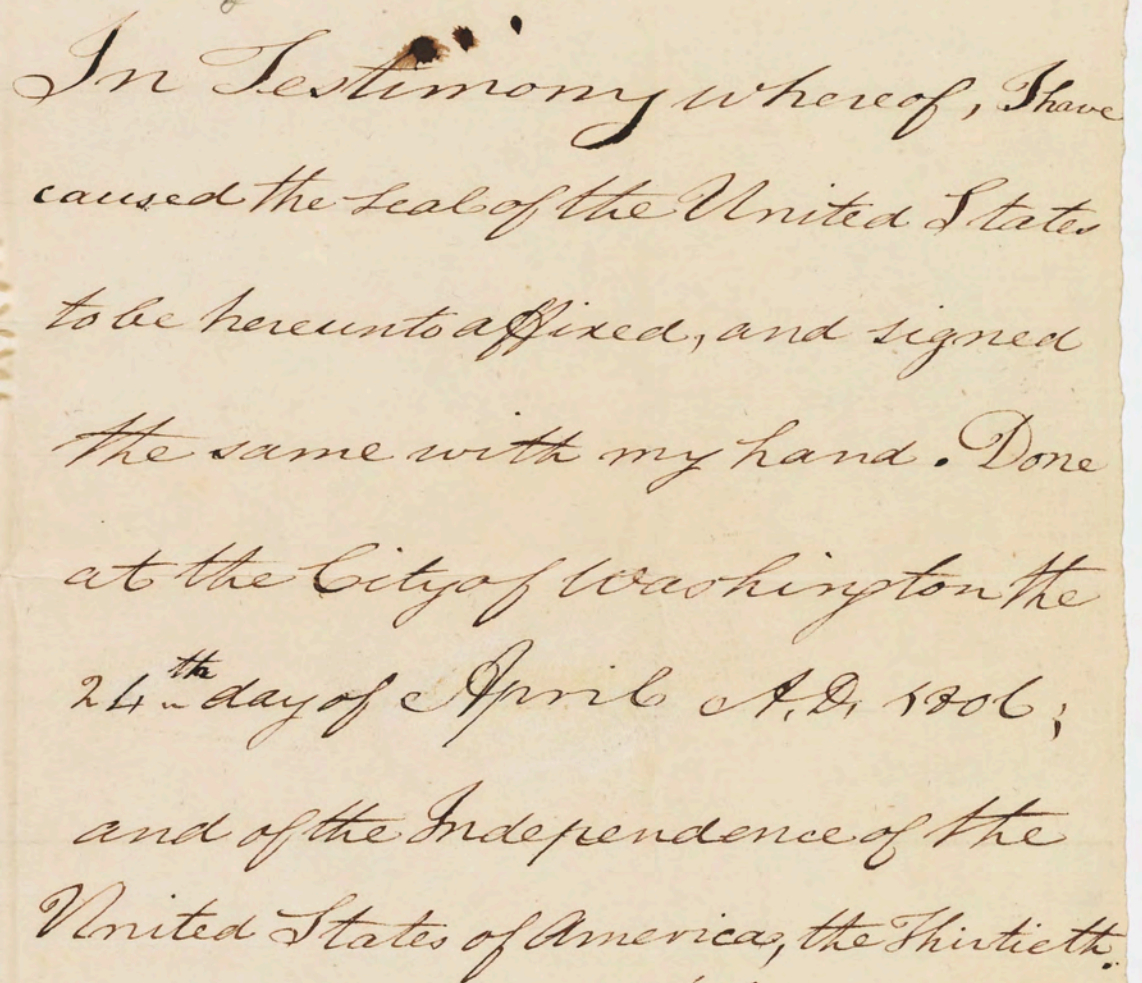 In Testimony whereof, I have
caused the seal of the United States
to be hereunto affixed, and signed
the same with my hand. Done
at the City of Washington the
24th day of April A.D. 1806;
and of the Independence of the
United States of America, the Thirtieth.